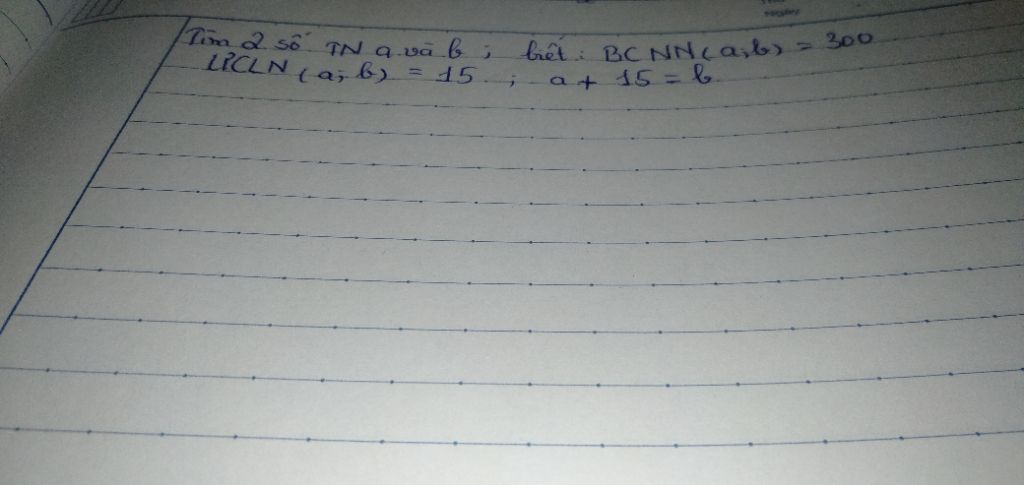 Tìm 2 số TN a và b ; biết : BCNN(a;b) = 300
ƯCLN(a; b) = 15 ; a + 15 = b